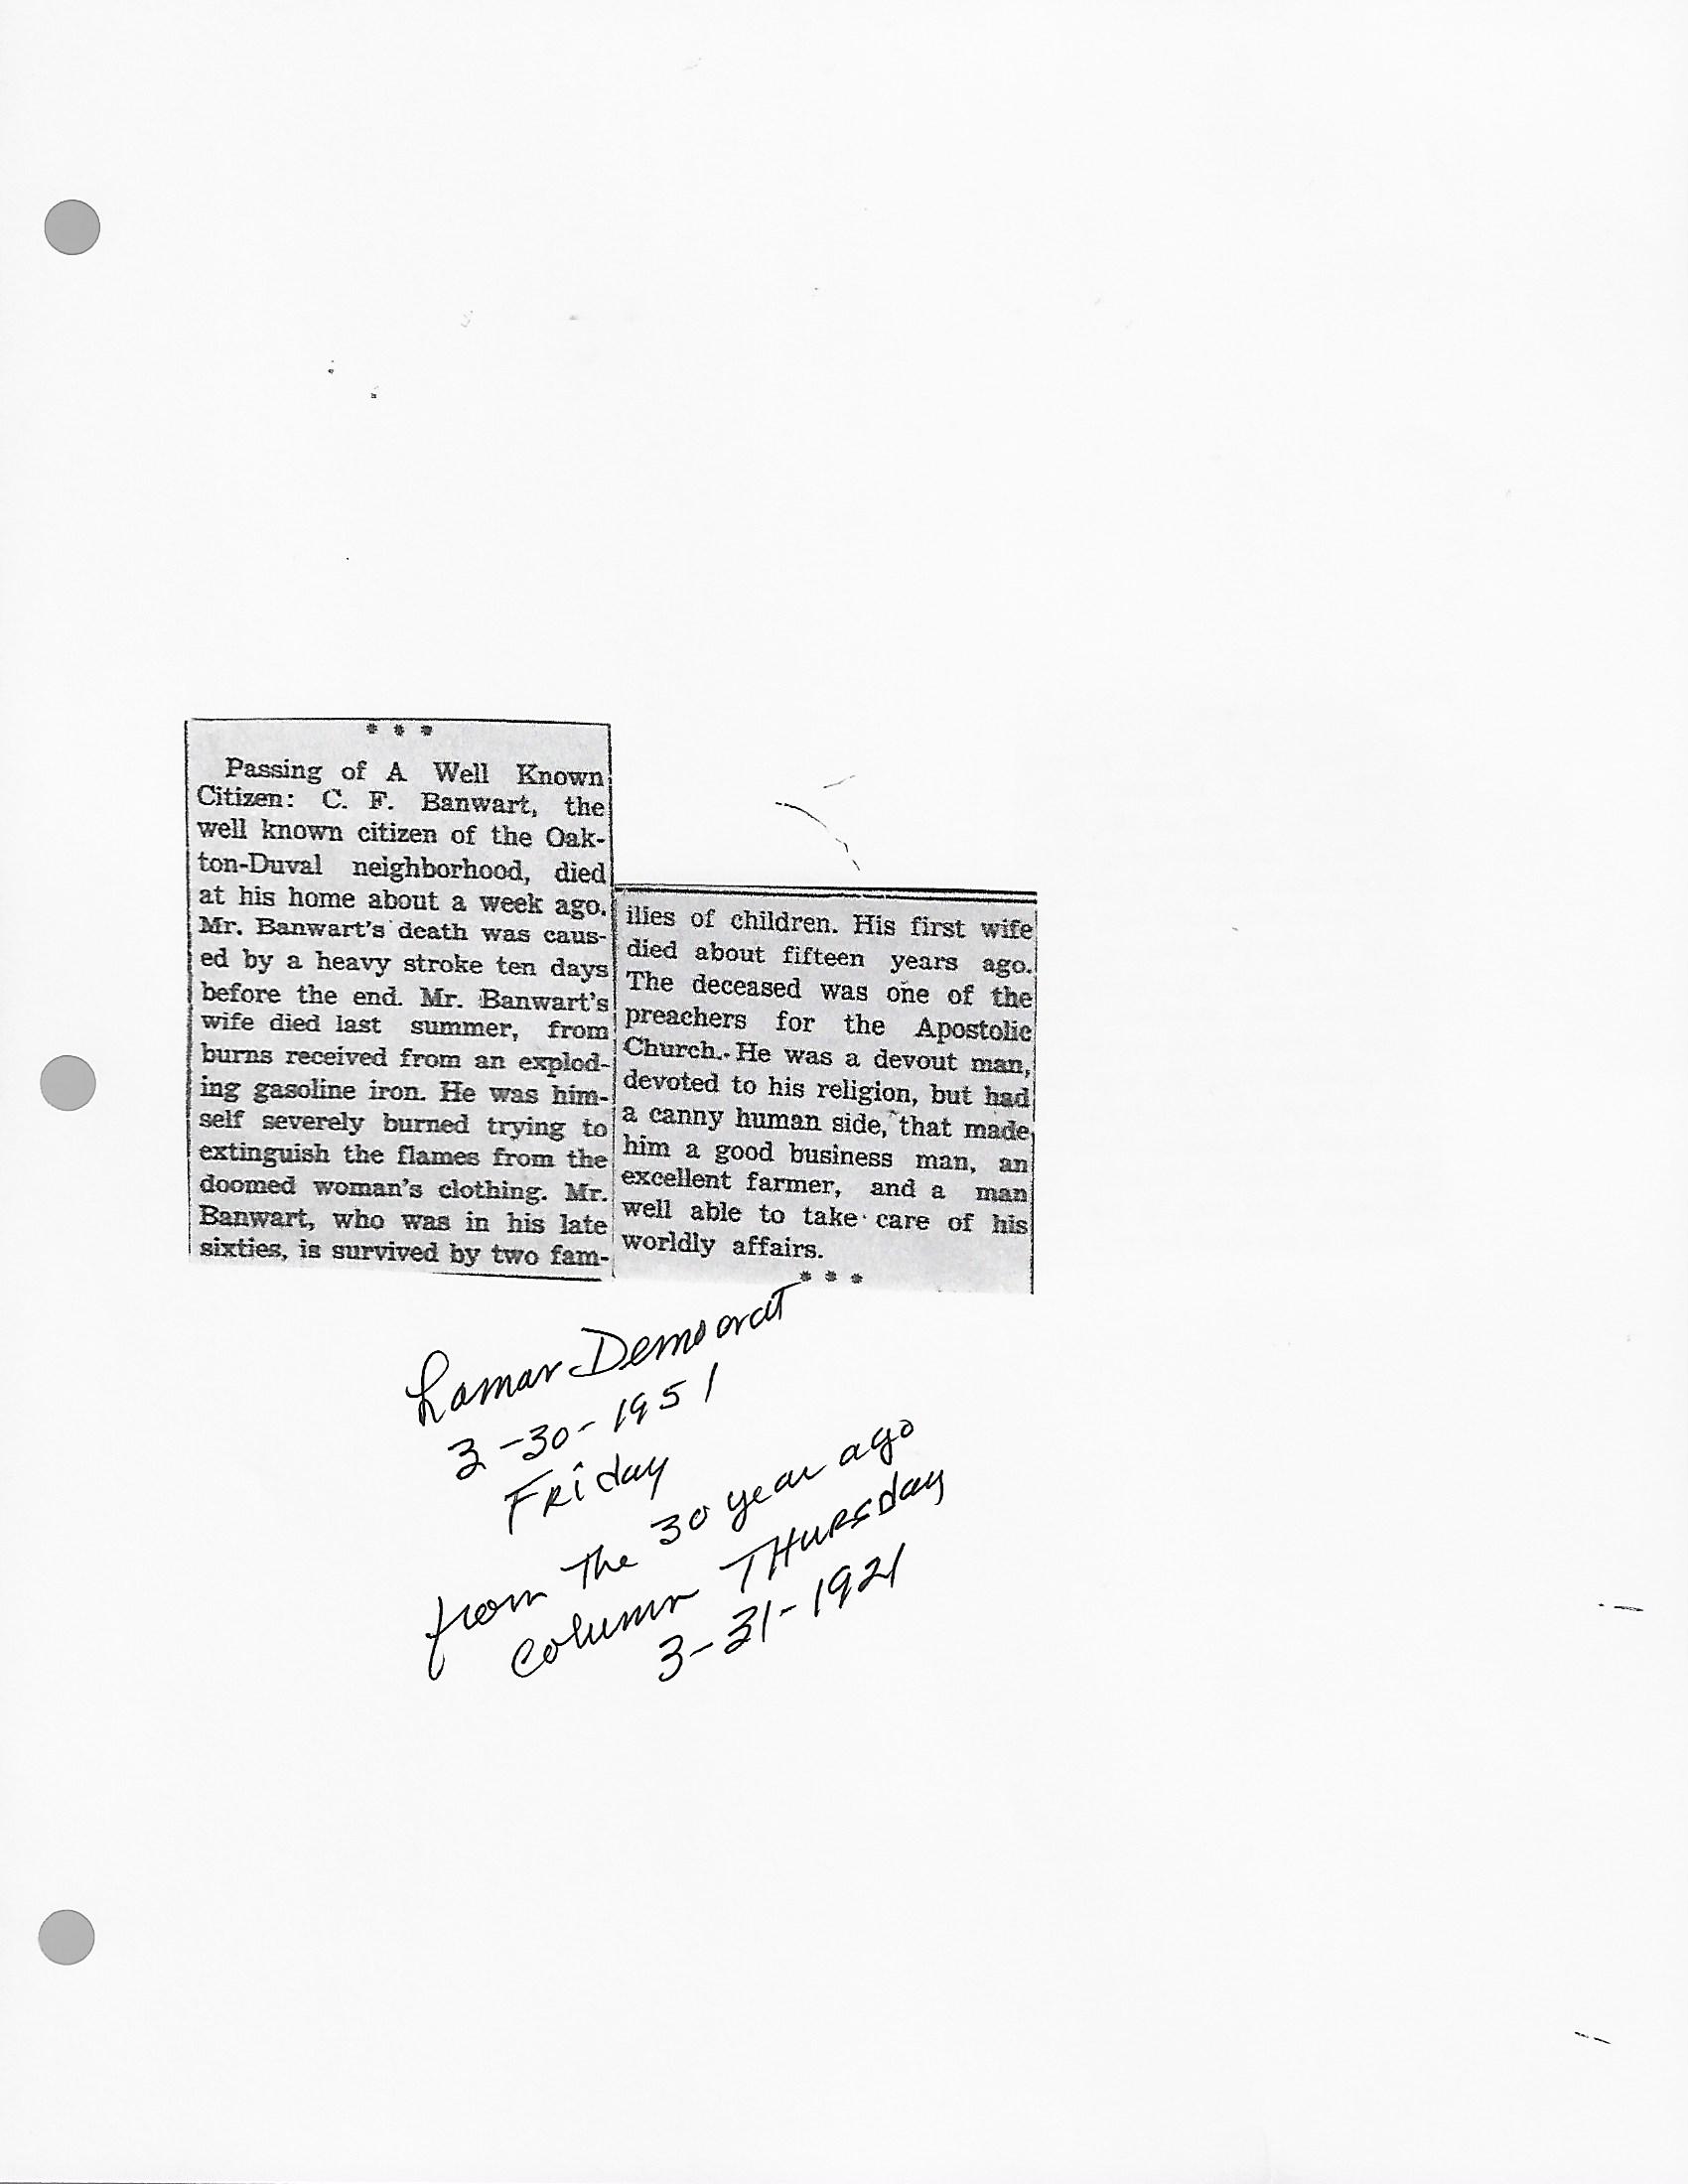 * * *
Passing of A Well Known
Citizen: C. F. Banwart, the
well known citizen of the Oak-
ton-Duval neighborhood, died
at his home about a week ago.
Mr. Banwart's death was caus-
ed by a heavy stroke ten days
before the end. Mr. Banwart's
wife died last summer, from
burns received from an explod-
ing gasoline iron. He was him-
self severely burned trying to
extinguish the flames from the
doomed woman's clothing. Mr.
Banwart, who was in his late
sixties, is survived by two fam-
ilies of children. His first wife
died about fifteen years ago.
The deceased was one of the
preachers for the Apostolic
Church. He was a devout man,
devoted to his religion, but had
a canny human side, that made
him a good business man, an
excellent farmer, and a man
well able to take care of his
worldly affairs.
* * *
Lamar Democrat
3-30-1951
Friday
from The 30 year ago
Column THURSday
3-31-1921